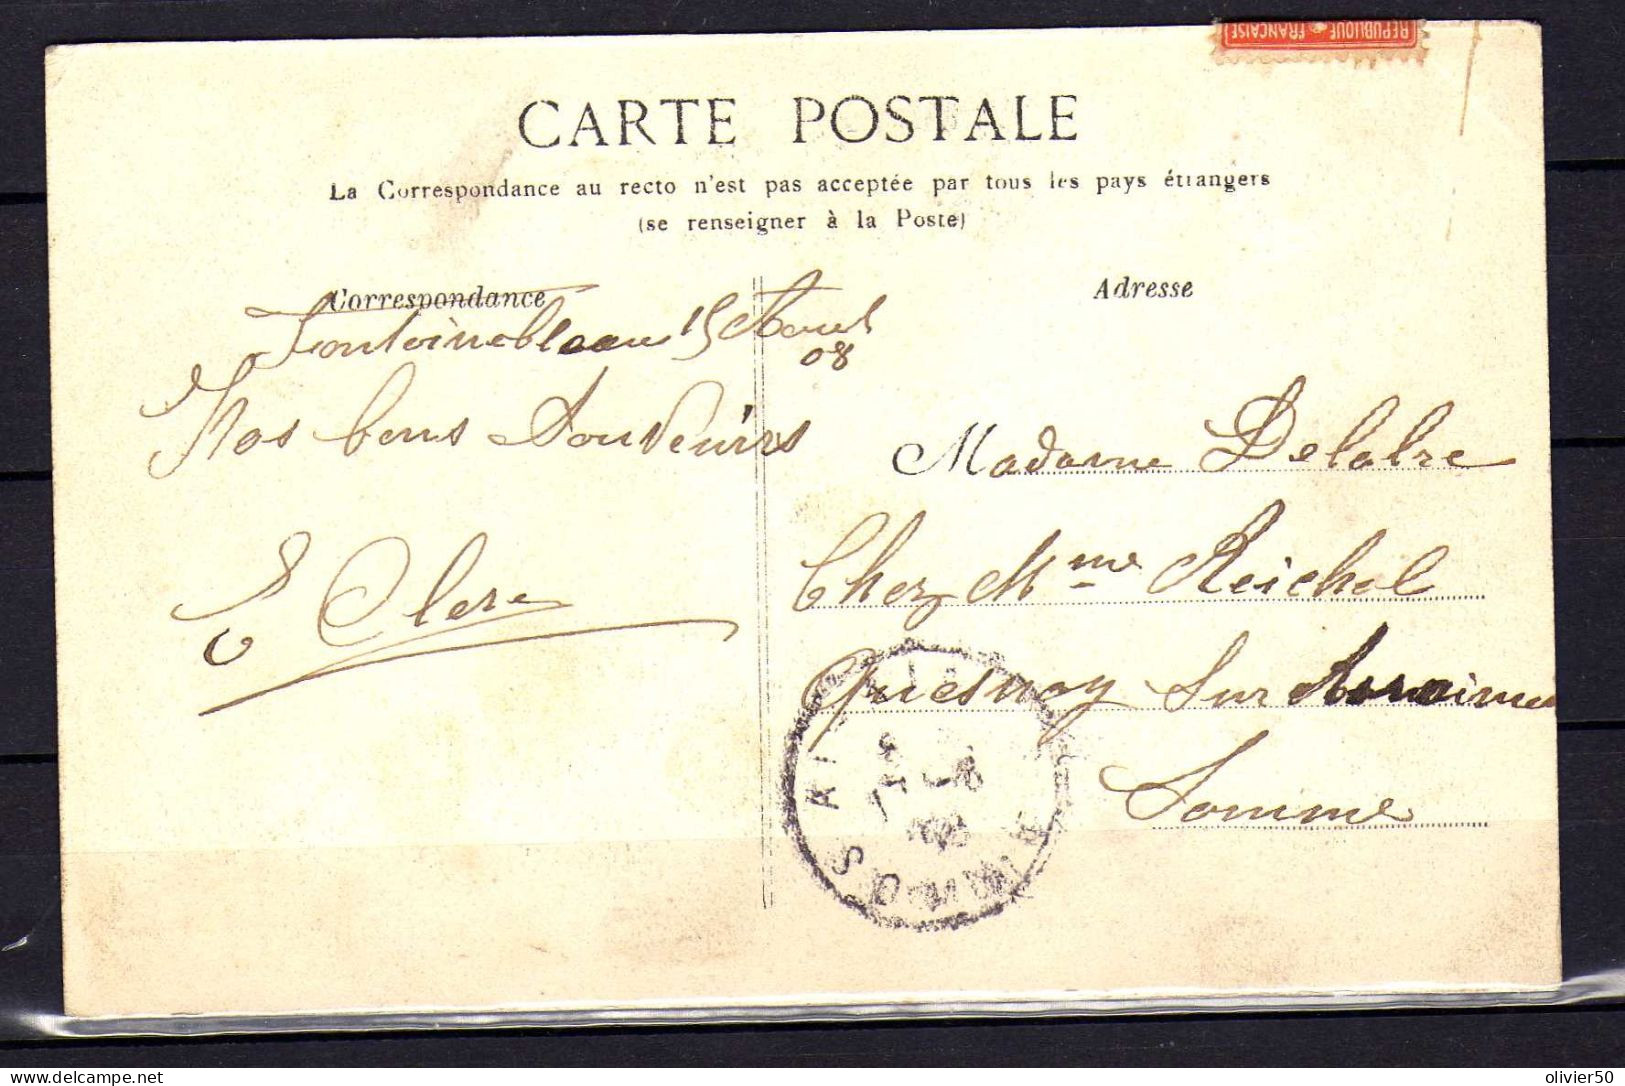 REPUBLIQUE FRANÇAISE
CARTE POSTALE
La Correspondance au recto n'est pas acceptée par tous les pays étrangers
(se renseigner à la Poste)
Correspondance
Adresse
Fontainebleau 15 Aout
08
Nos bons Souvenirs
E Clere
Madame Delabre
Chez Mme Reichel
Quesnoy Sur Airaines
Somme
olivier50